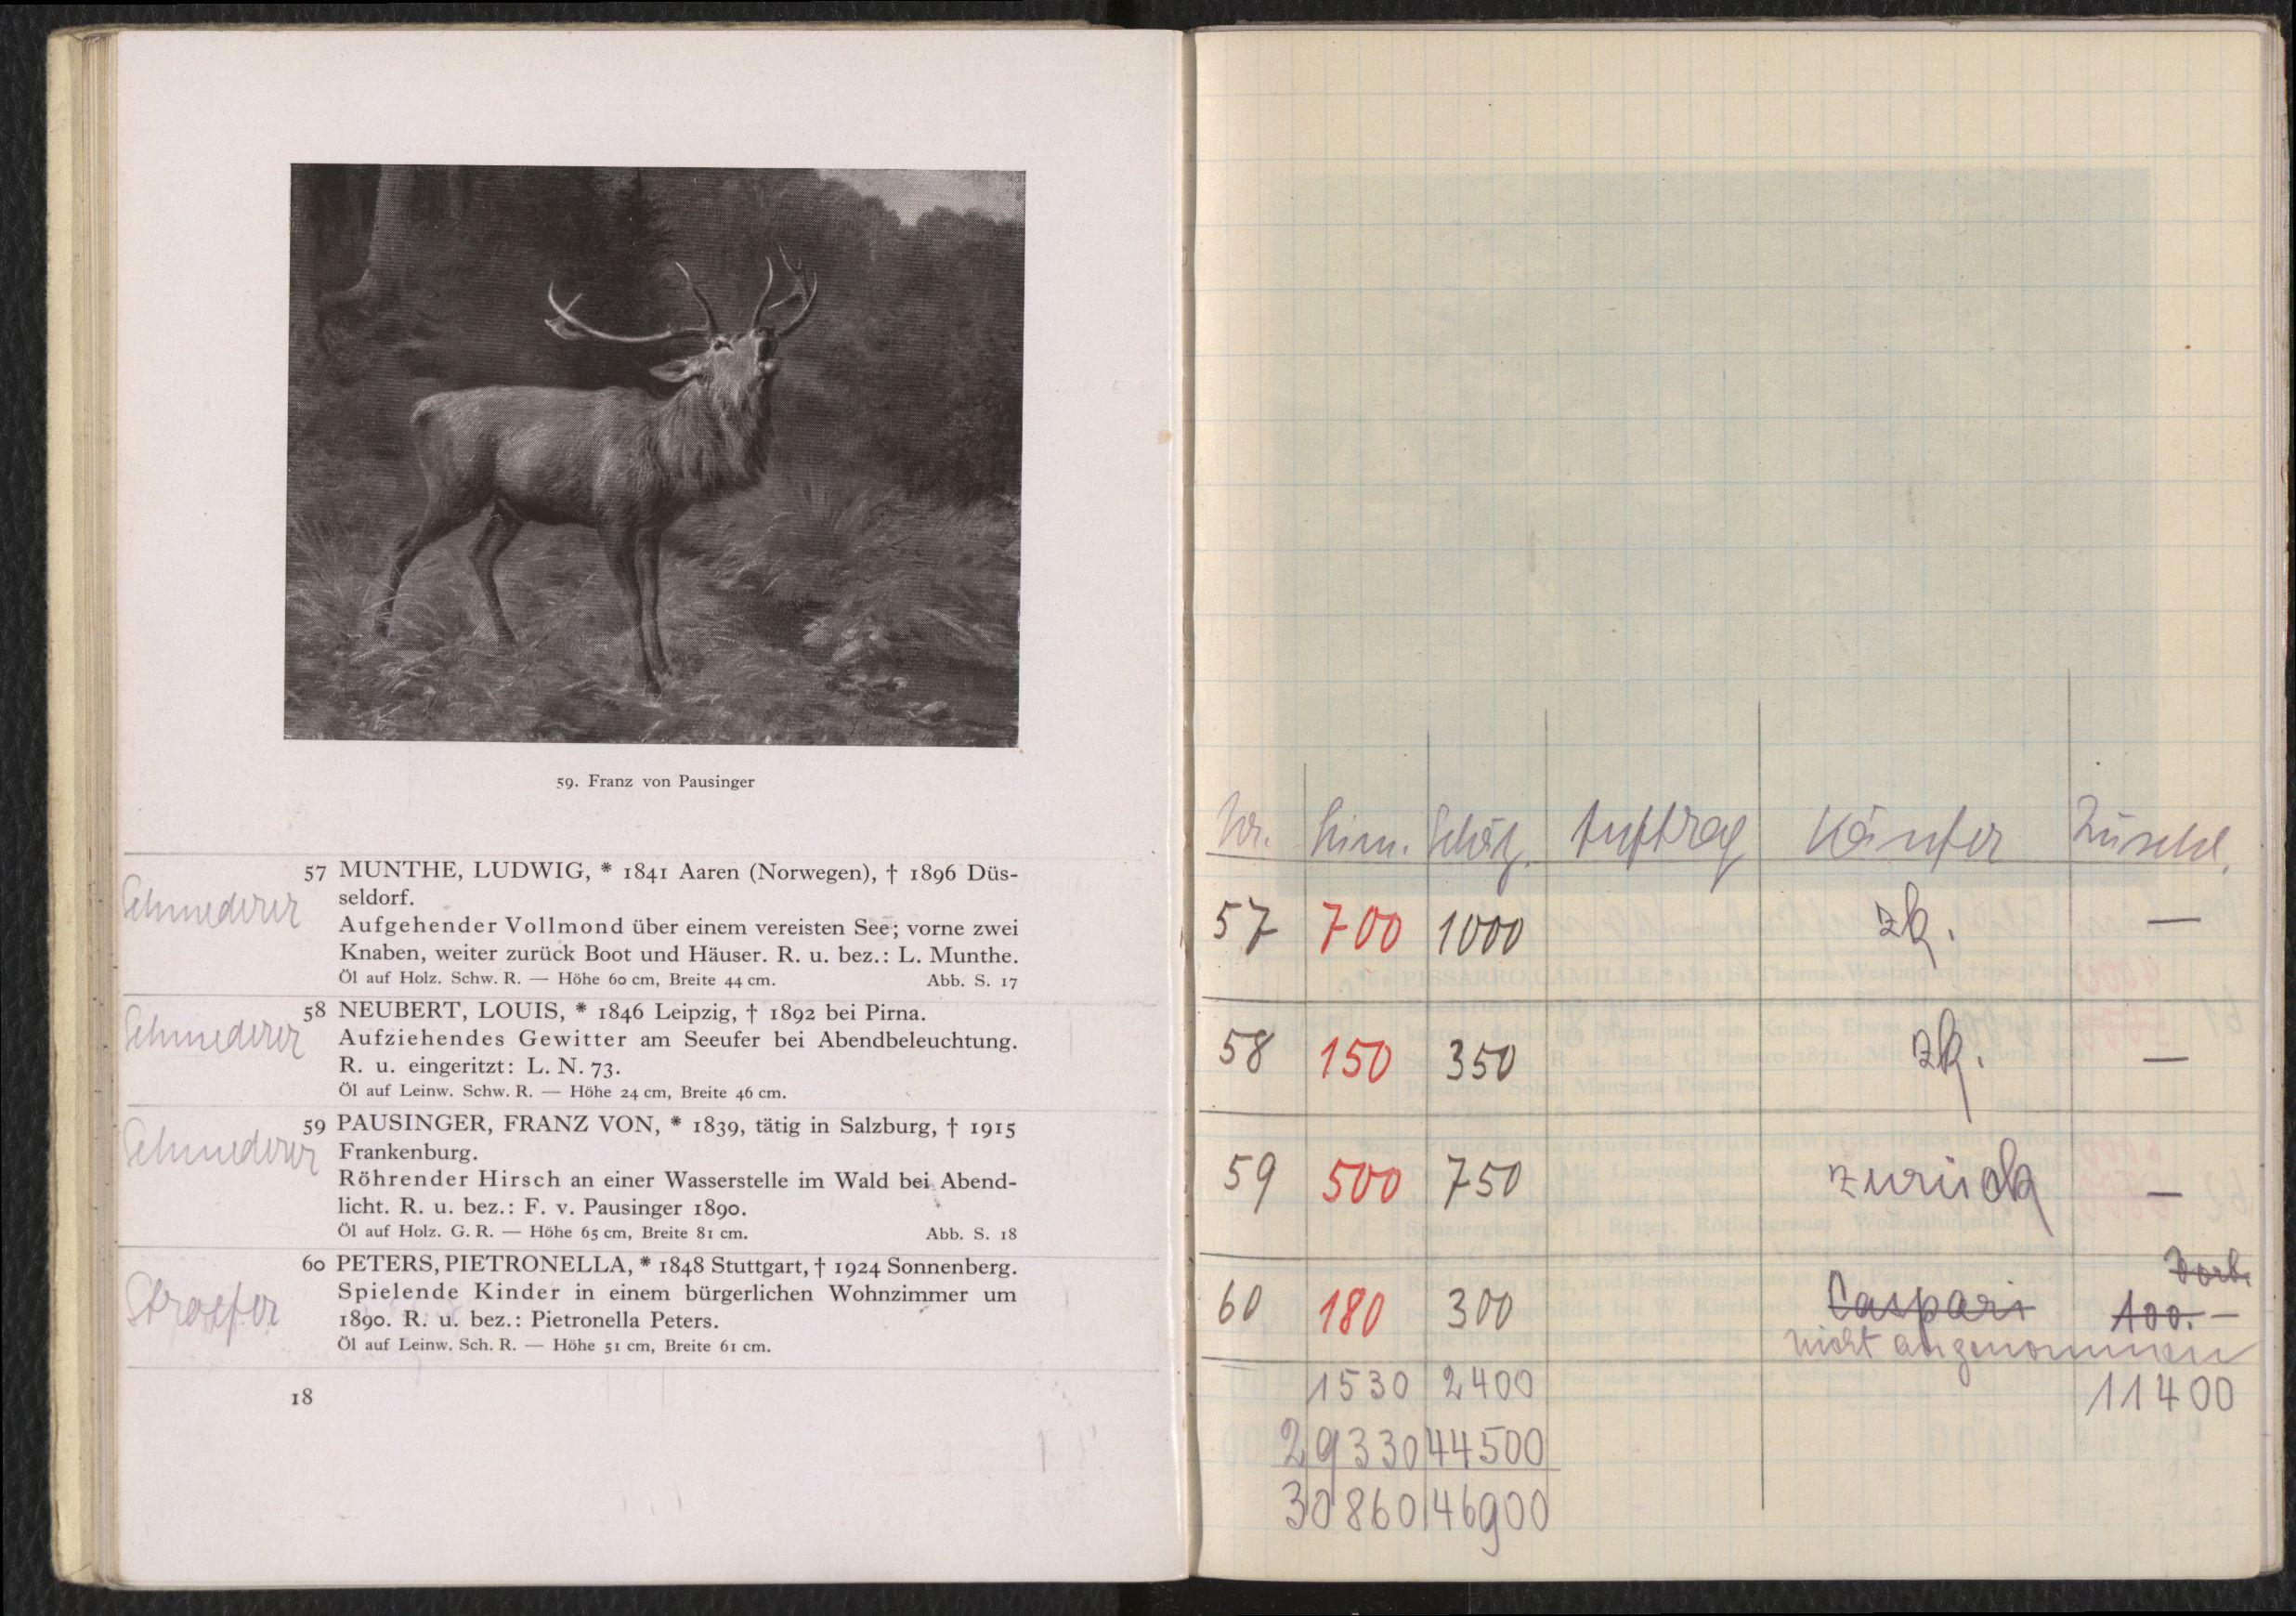 59. Franz von Pausinger
Schmederer
57 MUNTHE, LUDWIG, * 1841 Aaren (Norwegen), † 1896 Düs-
seldorf.
Aufgehender Vollmond über einem vereisten See; vorne zwei
Knaben, weiter zurück Boot und Häuser. R. u. bez.: L. Munthe.
Öl auf Holz. Schw. R. — Höhe 60 cm, Breite 44 cm. Abb. S. 17
Schmederer
58 NEUBERT, LOUIS, * 1846 Leipzig, † 1892 bei Pirna.
Aufziehendes Gewitter am Seeufer bei Abendbeleuchtung.
R. u. eingeritzt: L. N. 73.
Öl auf Leinw. Schw. R. — Höhe 24 cm, Breite 46 cm.
Schmederer
59 PAUSINGER, FRANZ VON, * 1839, tätig in Salzburg, † 1915
Frankenburg.
Röhrender Hirsch an einer Wasserstelle im Wald bei Abend-
licht. R. u. bez.: F. v. Pausinger 1890.
Öl auf Holz. G. R. — Höhe 65 cm, Breite 81 cm. Abb. S. 18
Stroefer
60 PETERS, PIETRONELLA, * 1848 Stuttgart, † 1924 Sonnenberg.
Spielende Kinder in einem bürgerlichen Wohnzimmer um
1890. R. u. bez.: Pietronella Peters.
Öl auf Leinw. Sch. R. — Höhe 51 cm, Breite 61 cm.
18
Nr. Lim. Schätz. Auftrag Käufer Zuschl.
57 700 1000 zk. —
58 150 350 zk. —
59 500 750 zurück —
Vorb.
60 180 300 Caspari 100.—
nicht angenommen
1530 2400 11400
29330 44500
30860 46900